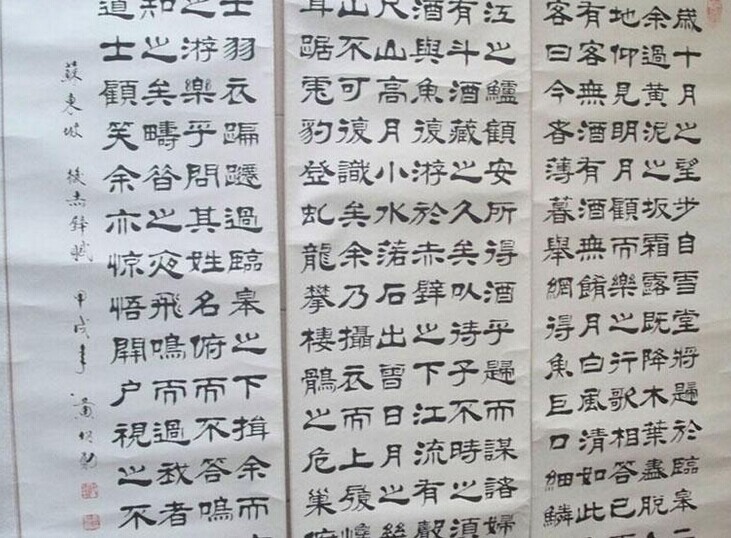 歲十月之望步自雪堂將歸於臨皋二
余過黃泥之坂霜露既降木葉盡脫
地仰見明月顧而樂之行歌相答已
有客無酒有酒無餚月白風清如此
客曰今者薄暮舉網得魚巨口細鱗
江之鱸顧安所得酒乎歸而謀諸婦
有斗酒藏之久矣以待子不時之須
酒與魚復游於赤壁之下江流有聲
尺山高月小水落石出曾日月之幾
山不可復識矣余乃攝衣而上履巉
踞虎豹登虬龍攀棲鶻之危巢俯
士羽衣蹁躚過臨皋之下揖余而
之游樂乎問其姓名俯而不答嗚
知之矣疇昔之夜飛鳴而過我者
道士顧笑余亦惊悟開户視之不
蘇東坡 後赤壁賦 甲戌年 黃